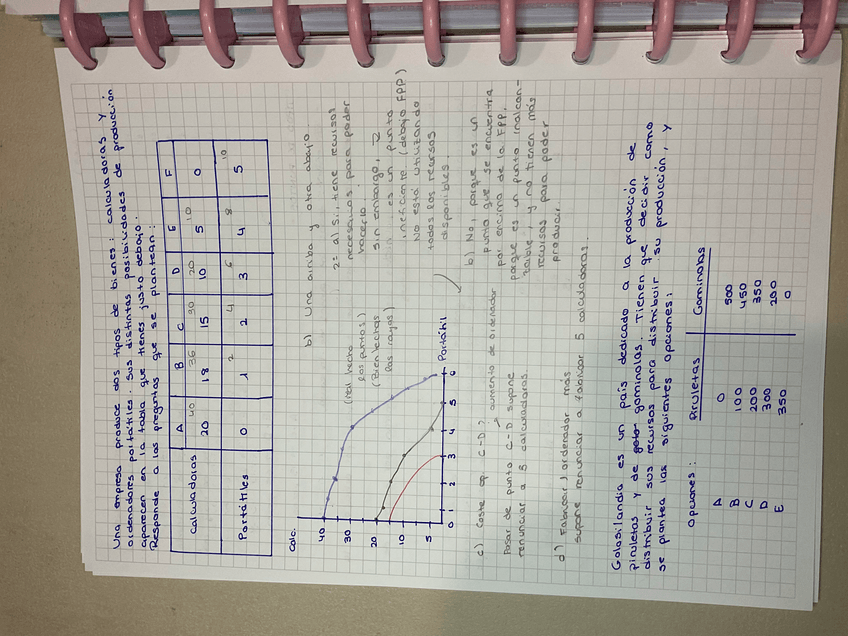 Una empresa produce dos tipos de bienes: calculadoras y
ordenadores portátiles. Sus distintas posibilidades de producción
aparecen en la tabla que tienes justo debajo.
Responde a las preguntas que se plantean:
A B C D E F
Calculadoras 20 40 18 36 15 30 10 20 5 10 0
Portátiles 0 1 2 2 4 3 6 4 8 5 10
b) Una arriba y otra abajo.
Calc.
40
30
20
10
5
0 1 2 3 4 5 6
Portátil
(Mal hecho
los puntos)
(Bien hechas
las rayas)
2= a) Si, tiene recursos
necesarios para poder
hacerlo
sin embargo,
es un punto
ineficiente (debajo FPP)
No está utilizando
todos los recursos
disponibles.
b) No, porque es un
punto que se encuentra
por encima de la FPP.
porque es un punto inalcan-
zable, y no tienen más
recursos para poder
producir.
c) Coste op. C-D?
aumento de ordenador
Pasar de punto C-D supone
renunciar a 5 calculadoras.
d) Fabricar 1 ordenador más
supone renunciar a fabricar 5 calculadoras.
Golosilandia es un país dedicado a la producción de
piruletas y de gominolas. Tienen que decidir como
distribuir sus recursos para distribuir su producción, y
se plantea las siguientes opciones:
Opciones: Piruletas Gominolas
A 0 500
B 100 450
C 200 350
D 300 200
E 350 0